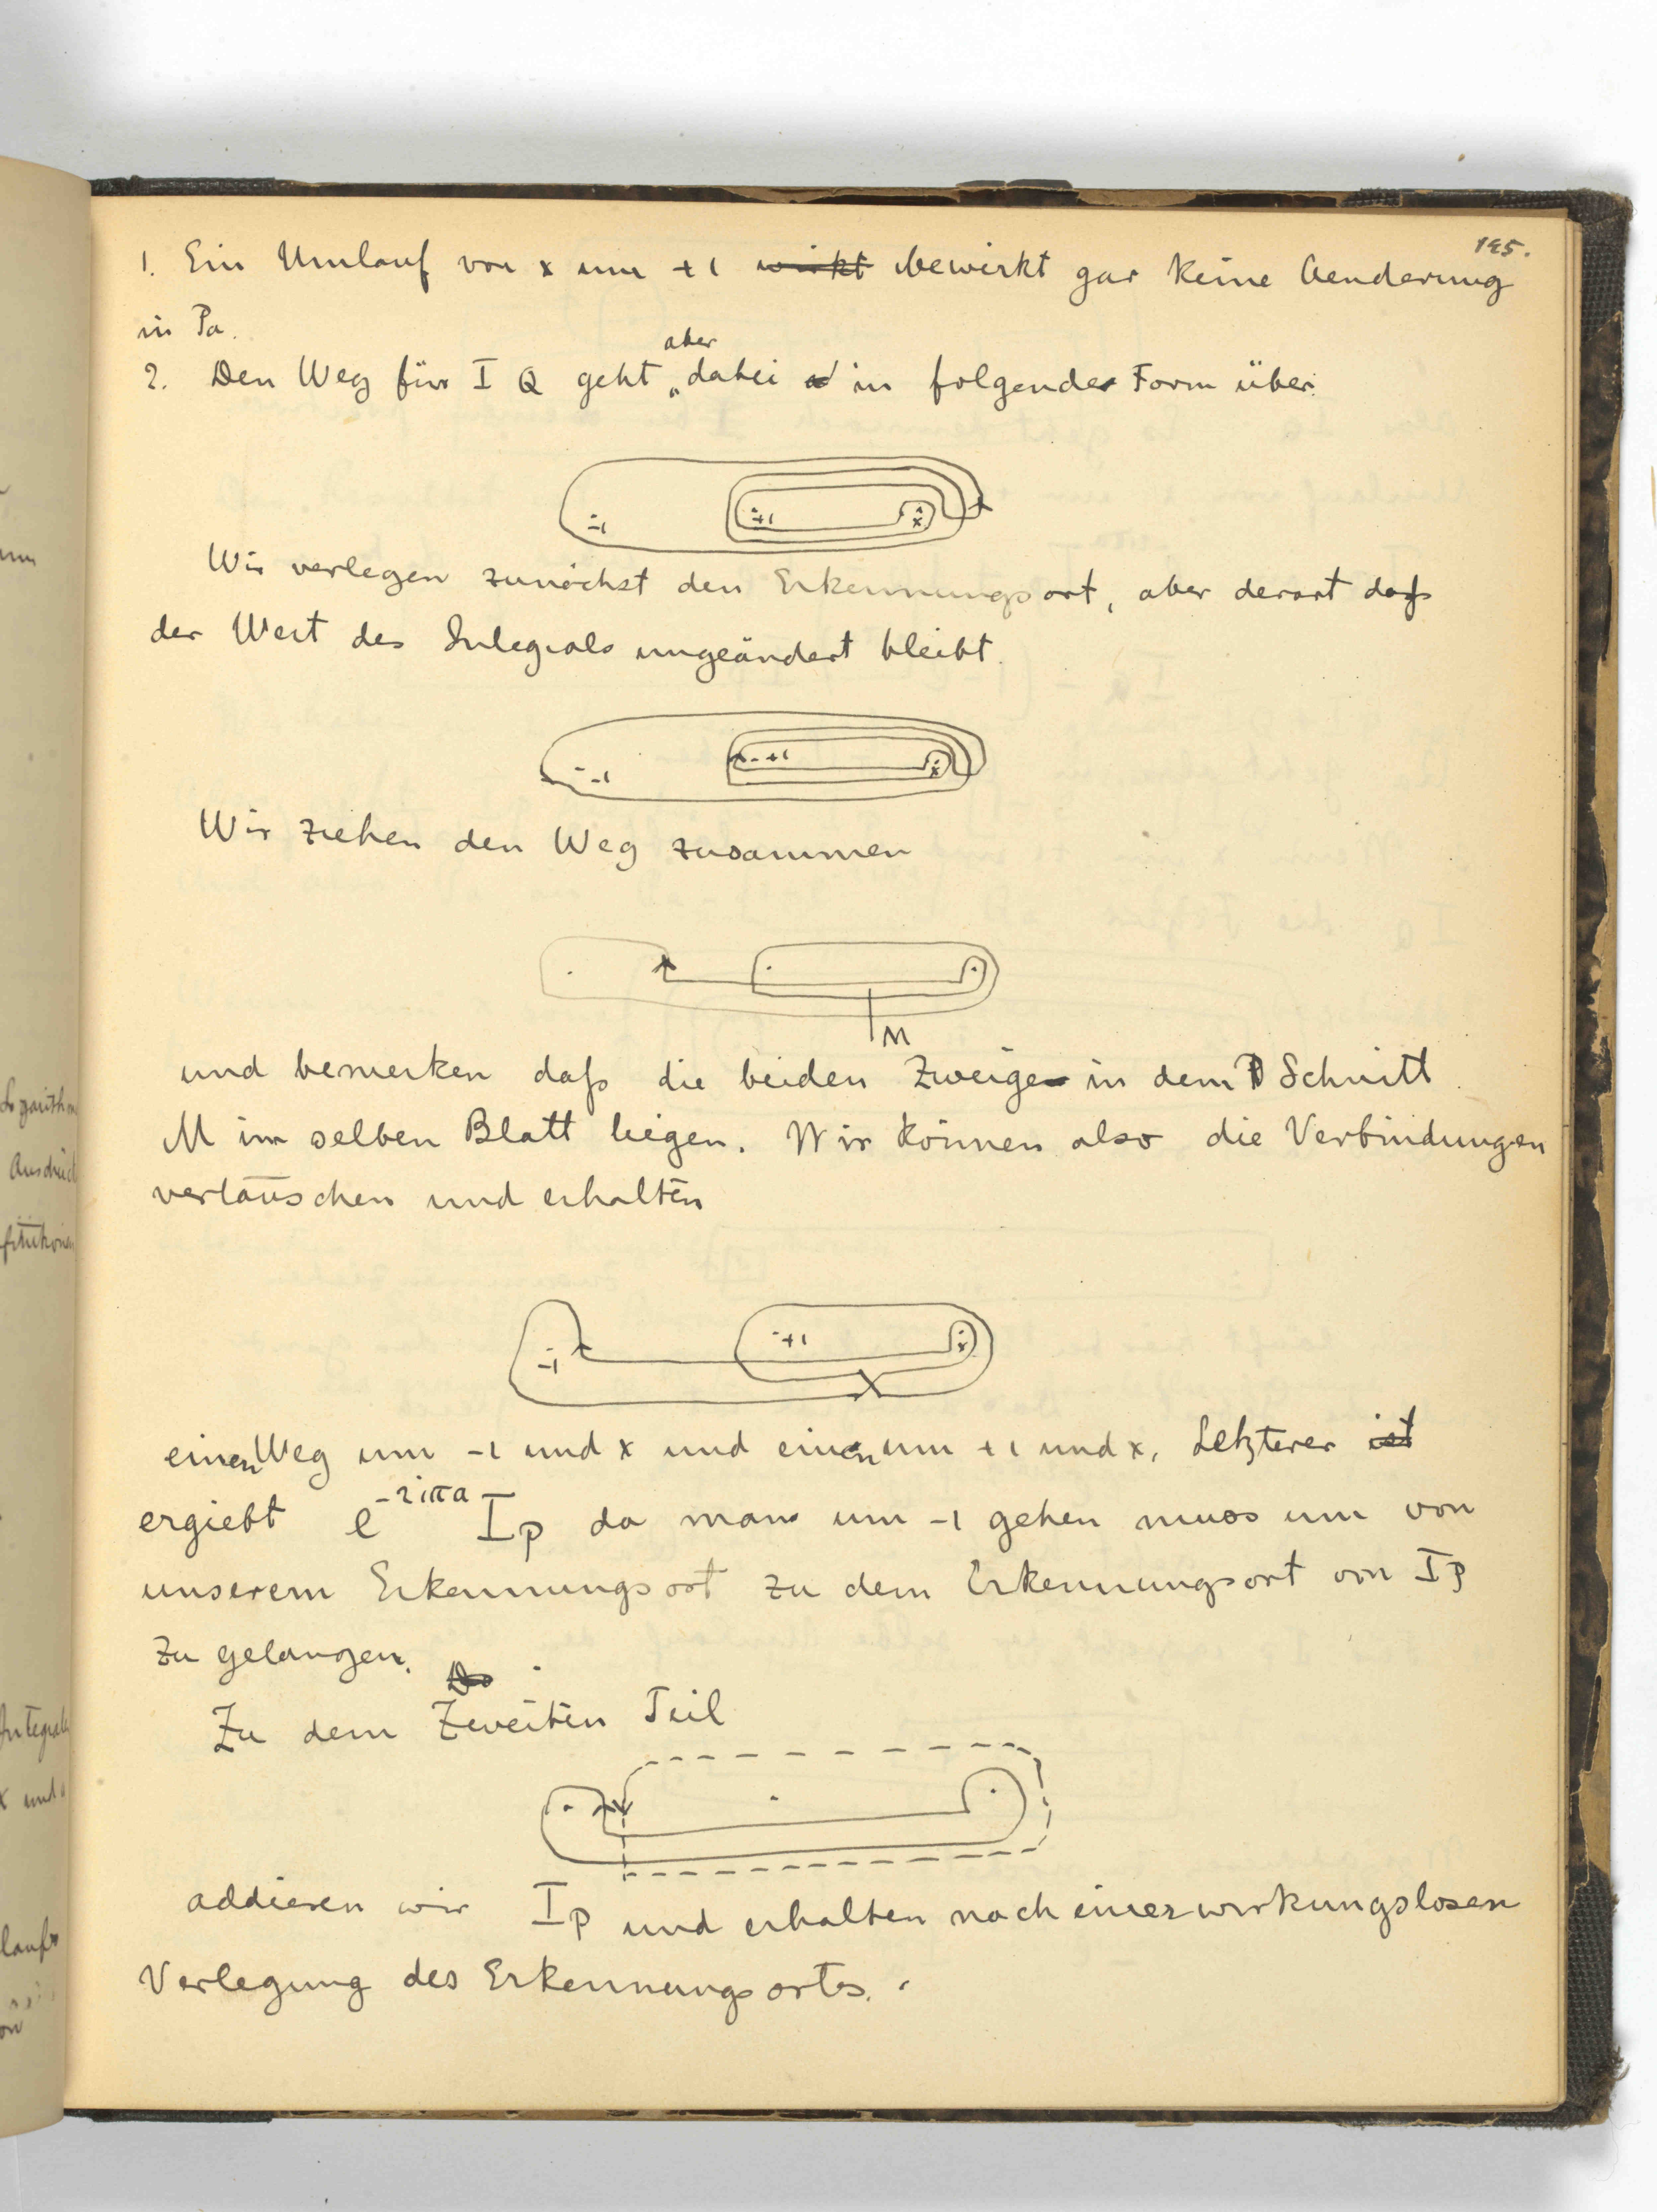 195.
1. Ein Umlauf von x um +1 wirkt bewirkt gar keine Aenderung
in Pa.
aber
2. Den Weg für I Q geht dabei in folgender Form über:
-1 +1 x
Wir verlegen zunächst den Erkennungsort, aber derart daß
der Wert des Integrals ungeändert bleibt.
-1 +1 x
Wir ziehen den Weg zusammen
M
und bemerken daß die beiden Zweige in dem Schnitt
M im selben Blatt liegen. Wir können also die Verbindungen
vertauschen und erhalten
-1 +1 x
einen Weg um -1 und x und einen um +1 und x. Letzterer ist
ergiebt e^{-2iπa} I_P da man um -1 gehen muss um von
unserem Erkennungsort zu dem Erkennungsort von I_P
zu gelangen.
Zu dem Zweiten Teil
addieren wir I_P und erhalten nach einer wirkungslosen
Verlegung des Erkennungsortes.
Logarithm
Ausdrück
Integrale
x und
lauf